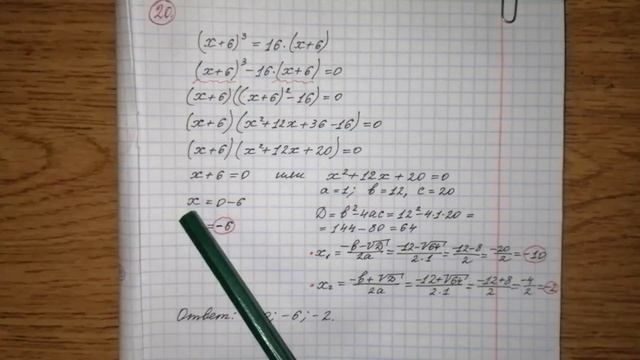 20.
(x+6)³ = 16·(x+6)
(x+6)³ - 16·(x+6) = 0
(x+6)((x+6)² - 16) = 0
(x+6)(x² + 12x + 36 - 16) = 0
(x+6)(x² + 12x + 20) = 0
x + 6 = 0 или x² + 12x + 20 = 0
a = 1; b = 12, c = 20
x = 0 - 6
= -6
D = b² - 4ac = 12² - 4·1·20 =
= 144 - 80 = 64
x₁ = (-b - √D)/2a = (-12 - √64)/2·1 = (-12 - 8)/2 = -20/2 = -10
x₂ = (-b + √D)/2a = (-12 + √64)/2·1 = (-12 + 8)/2 = -4/2 = -2
Ответ: ; -6; -2.